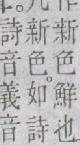 新色鮮也
新色。如詩
詩音義音